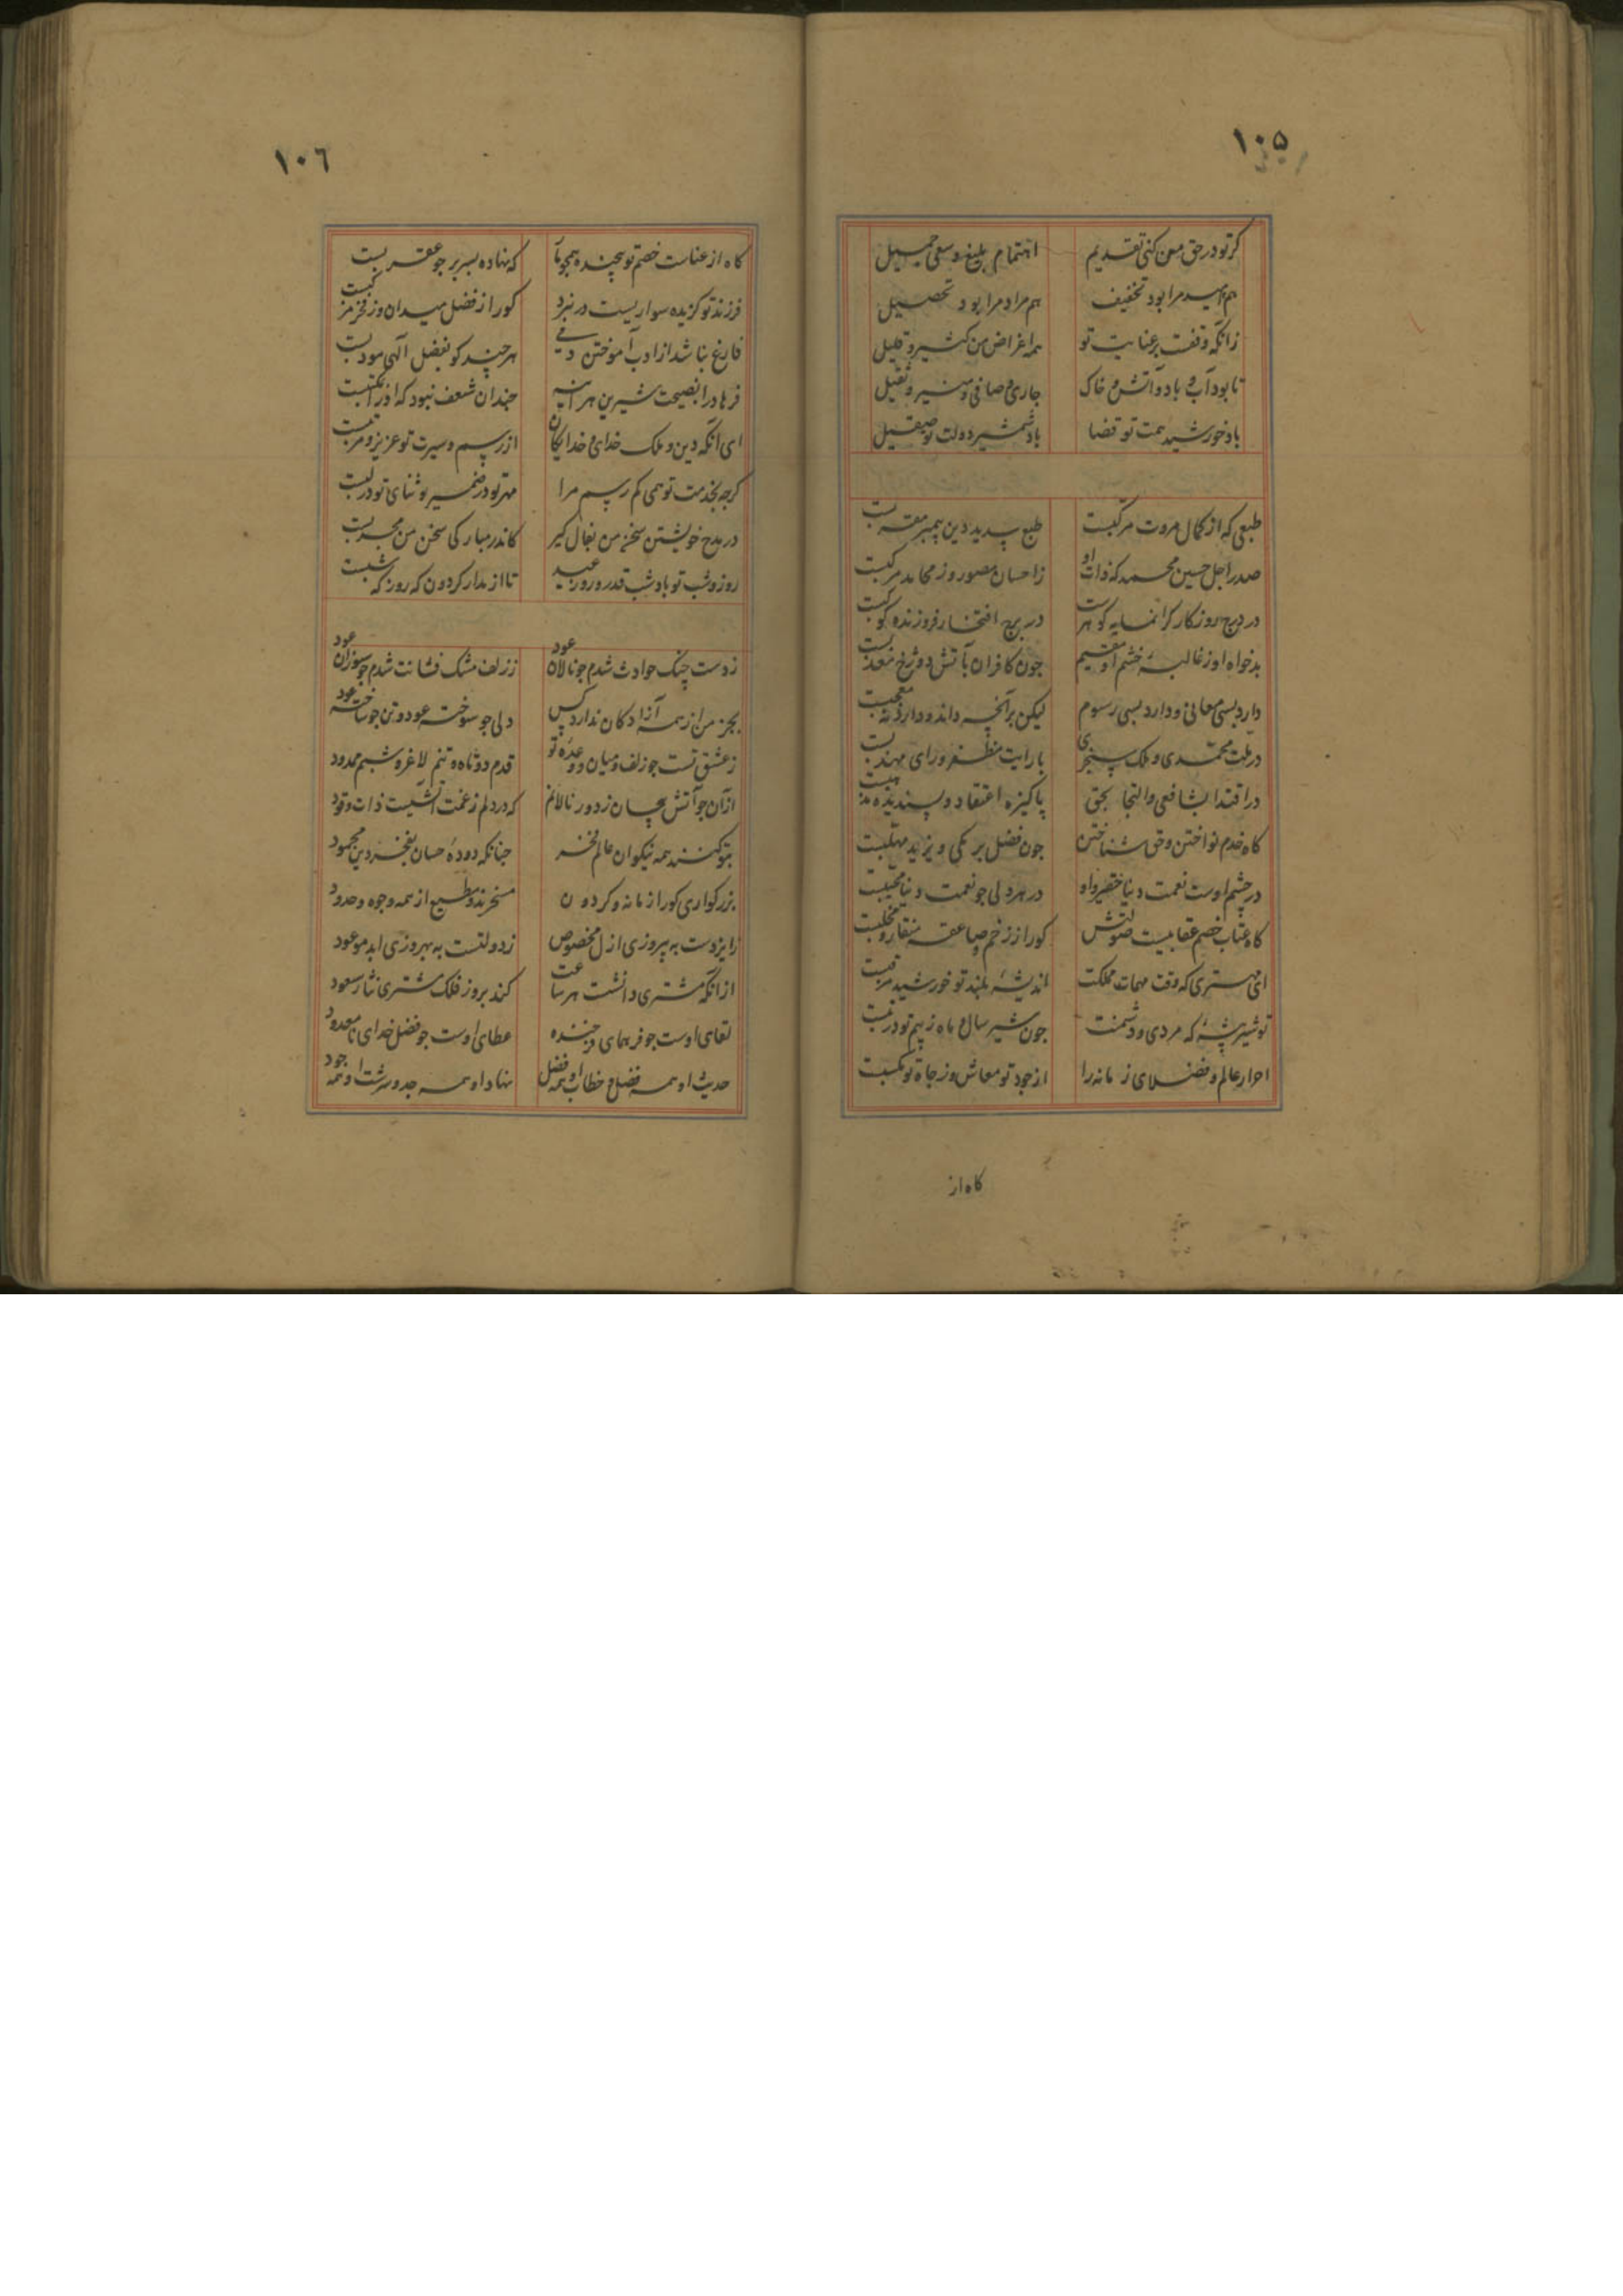 ۱۰۵
کر تو در حق من کنی تقدیم اهتمام بلیغ و سعی جمیل
هم امید مرا بود تخفیف هم مراد مرا بود تحصیل
زانکه وقفست بر عنایت تو همه اغراض من کثیر و قلیل
تا بود آب و باد و آتش و خاک جاری و صافی و منیر و ثقیل
باد خورشید همت تو قضا باد شمشیر دولت تو صقیل
طبعی که از کمال مروت مرکبست طبع پدید دین پیمبر
صدر اجل حسین محمد که ذات او ز احسان مصور و ز محامد مرکبست
در درج روزکار کرانمایه کوهرست در برج افتخار فروزنده کوکبست
بدخواه او ز غالیه خشم او مقیم جون کافران بآتش دوزخ معذبست
دارد بسی معانی و دارد بسی رسوم لیکن بر آنچه داند و دارد نه معجبست
در ملت محمدی و ملک سنجری با رایت مظفر و رای مهذبست
در اقتدا بشافعی و التجا بحق پاکیزه اعتقاد و پسندیده مذهبست
کاه خدم نواختن و حق شناختن جون فضل برمکی و یزید مهلبست
در چشم اوست نعمت دنیا حقیر و او در هر دلی جو نعمت دنیا محببست
کاه عتاب خصم عقابیست صولتش کورا ز زخم صاعقه منقار و مخلبست
ای مهتری که وقت مهمات مملکت اندیشه بلند تو خورشید
تو شیر بیشه که مردی و دشمنت جون شیر سال و ماه ز بیم تو در تبست
احرار عالم و فضلای زمانه را از جود تو معاش و ز جاه تو مکسبست
کاه از
۱۰۶
کاه از عناست خصم تو پیچنده همچو مار که نهاده بسر بر جو عقربست
فرزند تو کزیده سواریست در نبرد کورا ز فضل میدان وز فخر مرکبست
فارغ نباشد از ادب آموختن دمی هر چند کو بفضل الهی مودبست
فرهاد را نصیحت شیرین هر آینه جندان شعف نبود که او را
ای آنکه دین و ملک خدای و خدایکان از رسم و سیرت تو عزیز و مرتبست
کرجه بخدمت تو همی کم رسم مرا مهر تو در ضمیر و ثنای تو در لبست
در مدح خویشتن سخن من بفال کیر کاندر مبارکی سخن من مجربست
روز و شب تو باد شب قدر و روز عید تا از مدار کردون که روز و که شبست
ز دست چنک حوادث شدم جو نالان عود ز زلف مشک فشانت شدم جو سوزان عود
بجز من از همه آزادکان ندارد کس دلی جو سوخته عود و تن جو ساخته عود
ز عشق تست جو زلف و میان و وعده تو قدم دوتاه و تنم لاغر و شبم ممدود
از آن جو آتش پیچان ز دور نالانم که در دلم ز غمت آتشیست ذات وقود
بتو کنند همه نیکوان عالم فخر جنانکه دوده حسان بفخر دین محمود
بزرکواری کورا زمانه و کردون مسخرند و مطیع از همه وجوه و حدود
ز ایزدست به پیروزی ازل مخصوص ز دولتست به بهروزی ابد موعود
از آنکه مشتری دانشت هر ساعت کند بروز فلک مشتری نثار سعود
لقای اوست جو فر همای فرخنده عطای اوست جو فضل خدای نامعدود
حدیث او همه فضل و خطاب او همه فضل نهاد او همه جد و سرشت او همه جود